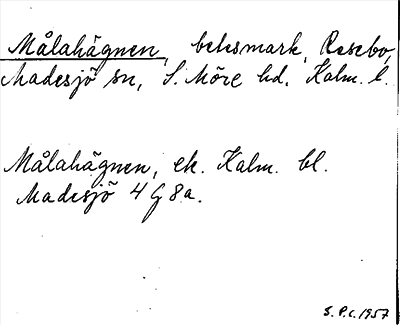 Målahägnen, betesmark, Resebo,
Madesjö sn, S. Möre hd. Kalm. l.
Målahägnen, ek. Kalm. bl.
Madesjö 4 G 8 a.
S. P. C. 1957